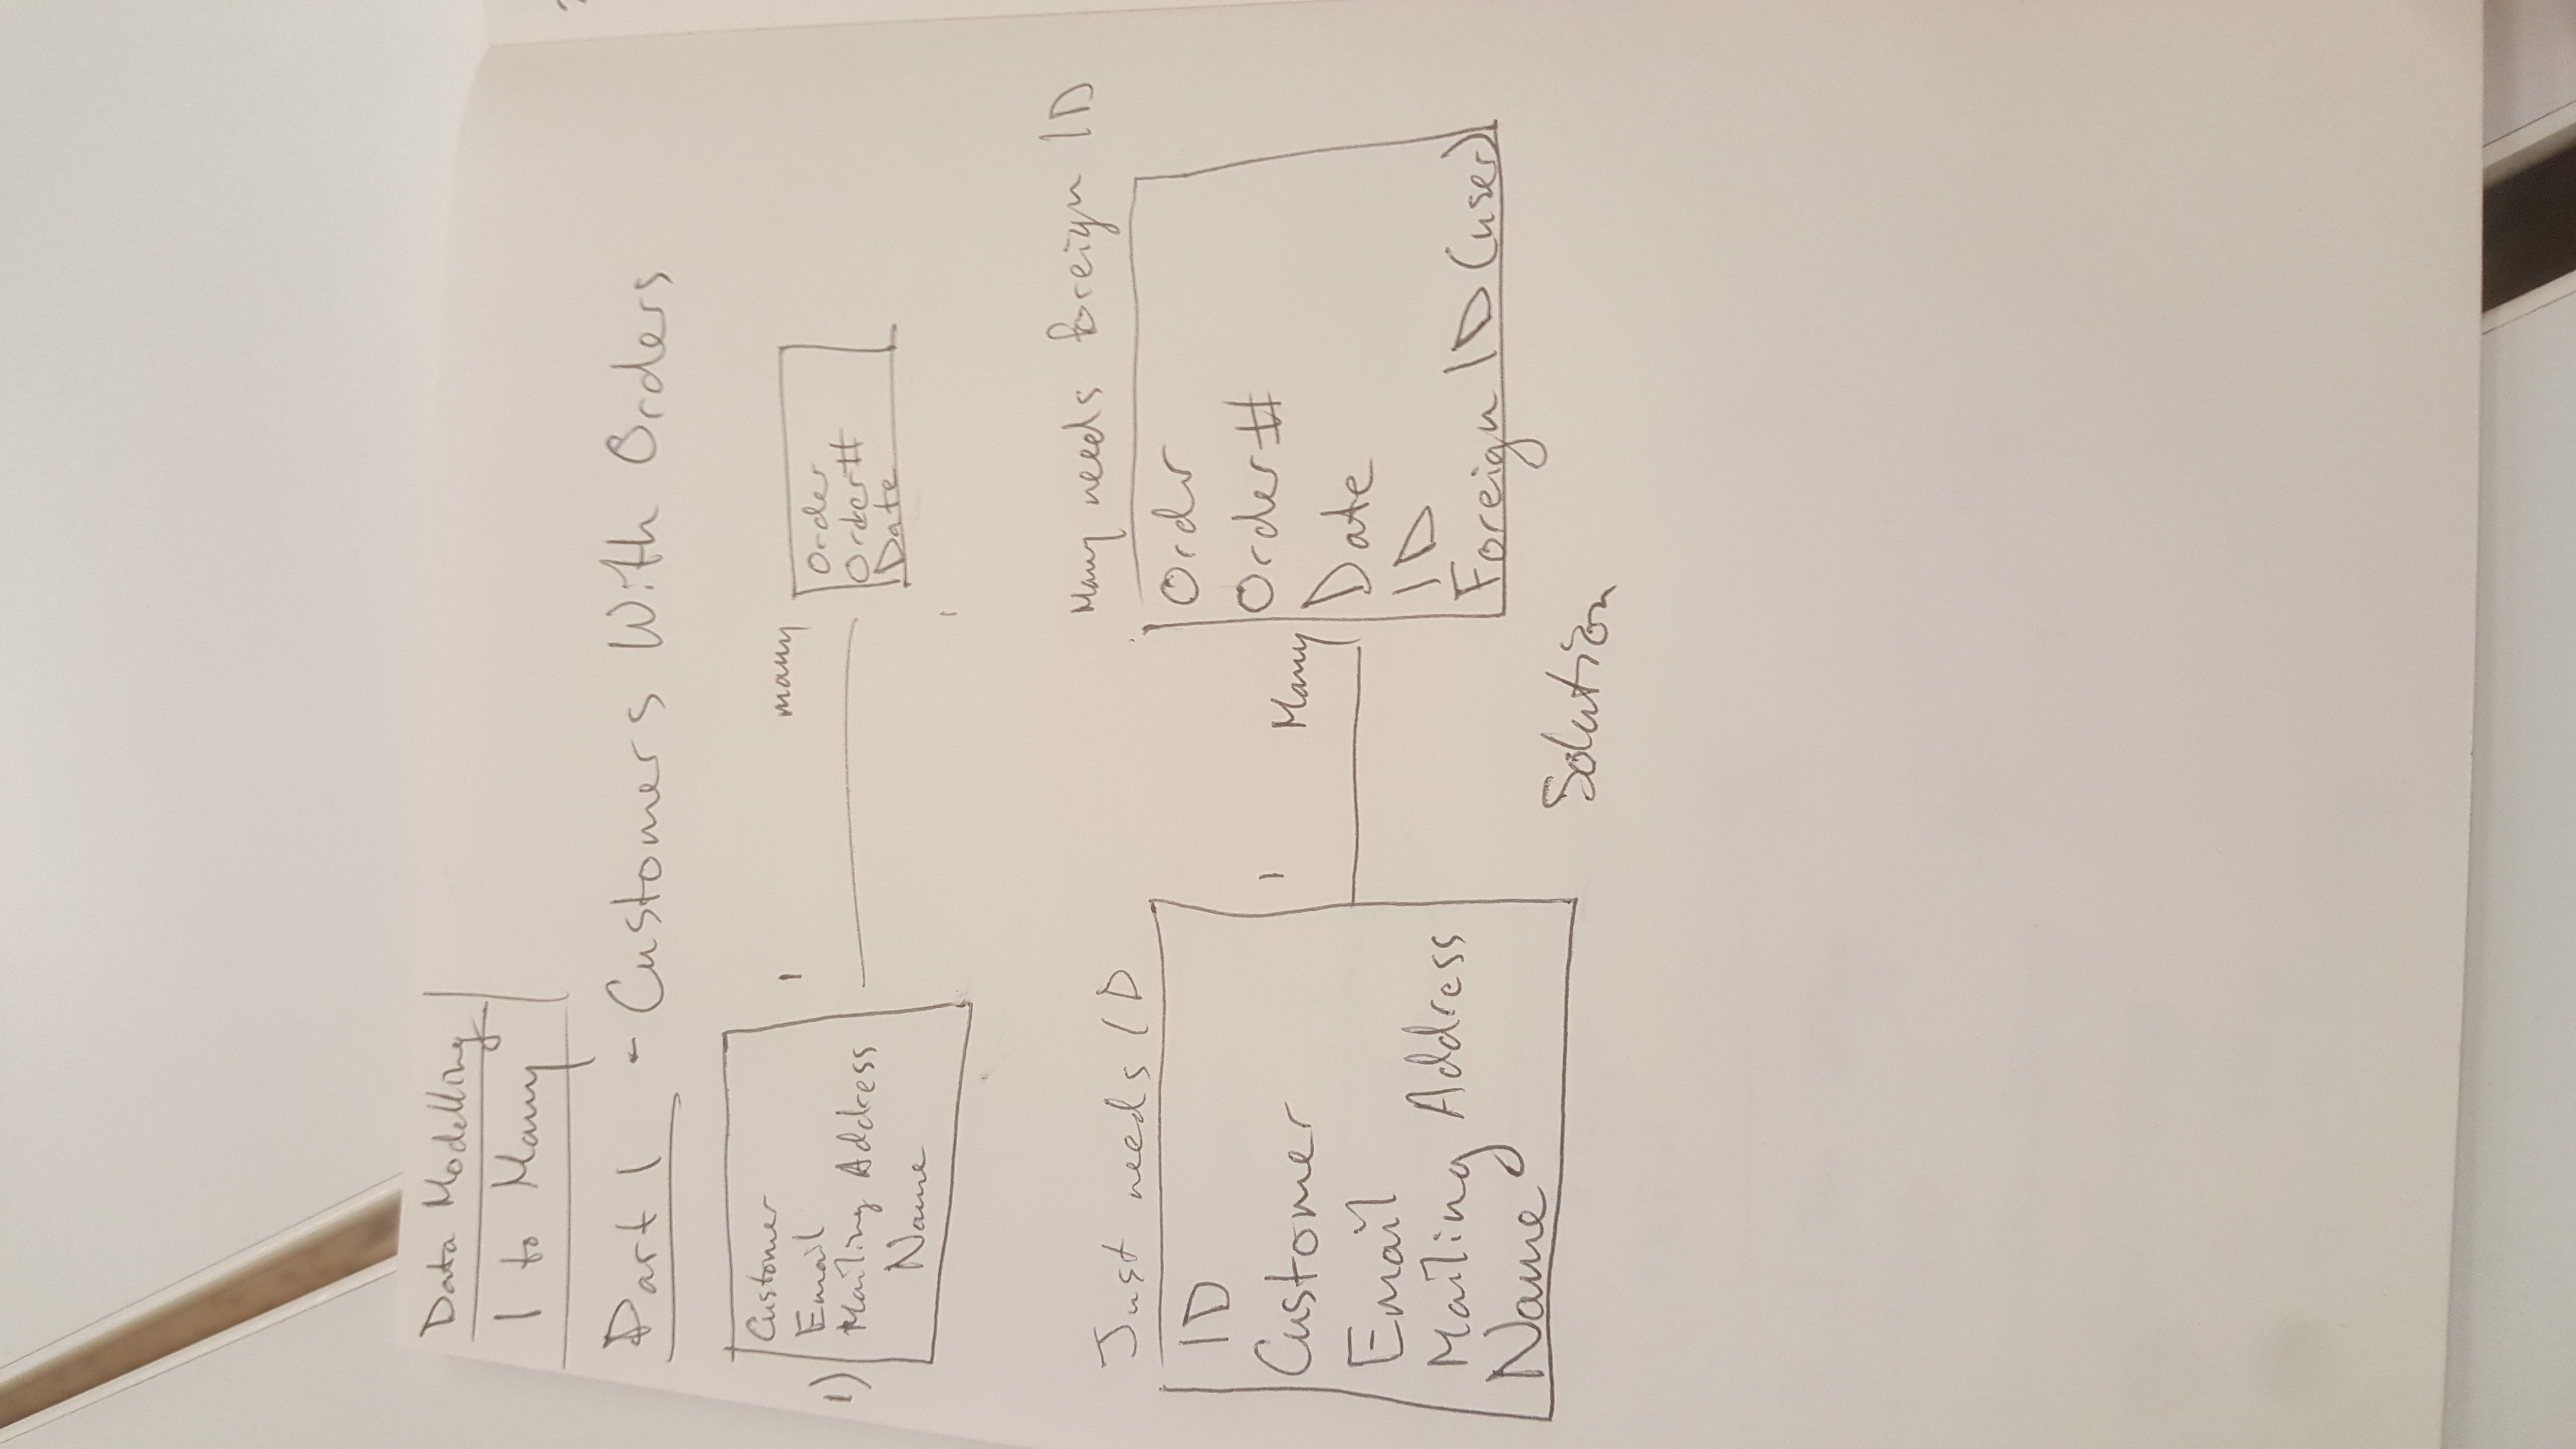 Data Modelling
1 to Many
Part 1 - Customers With Orders
1)
Customer
Email
Mailing Address
Name
1 many
Order
Order#
Date
Just needs ID
ID
Customer
Email
Mailing Address
Name
1 Many
Many needs foreign ID
Order
Order#
Date
ID
Foreign ID (user)
Solution